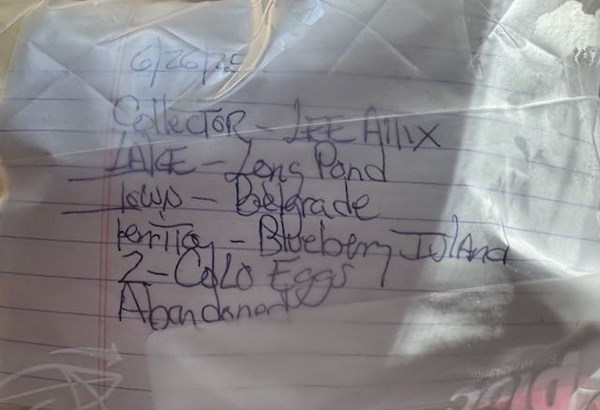 6/26/25
Collector - LEE Attix
LAKE - Long Pond
Town - Belgrade
territoy - Blueberry Island
2 - CoLo Eggs
Abandoned